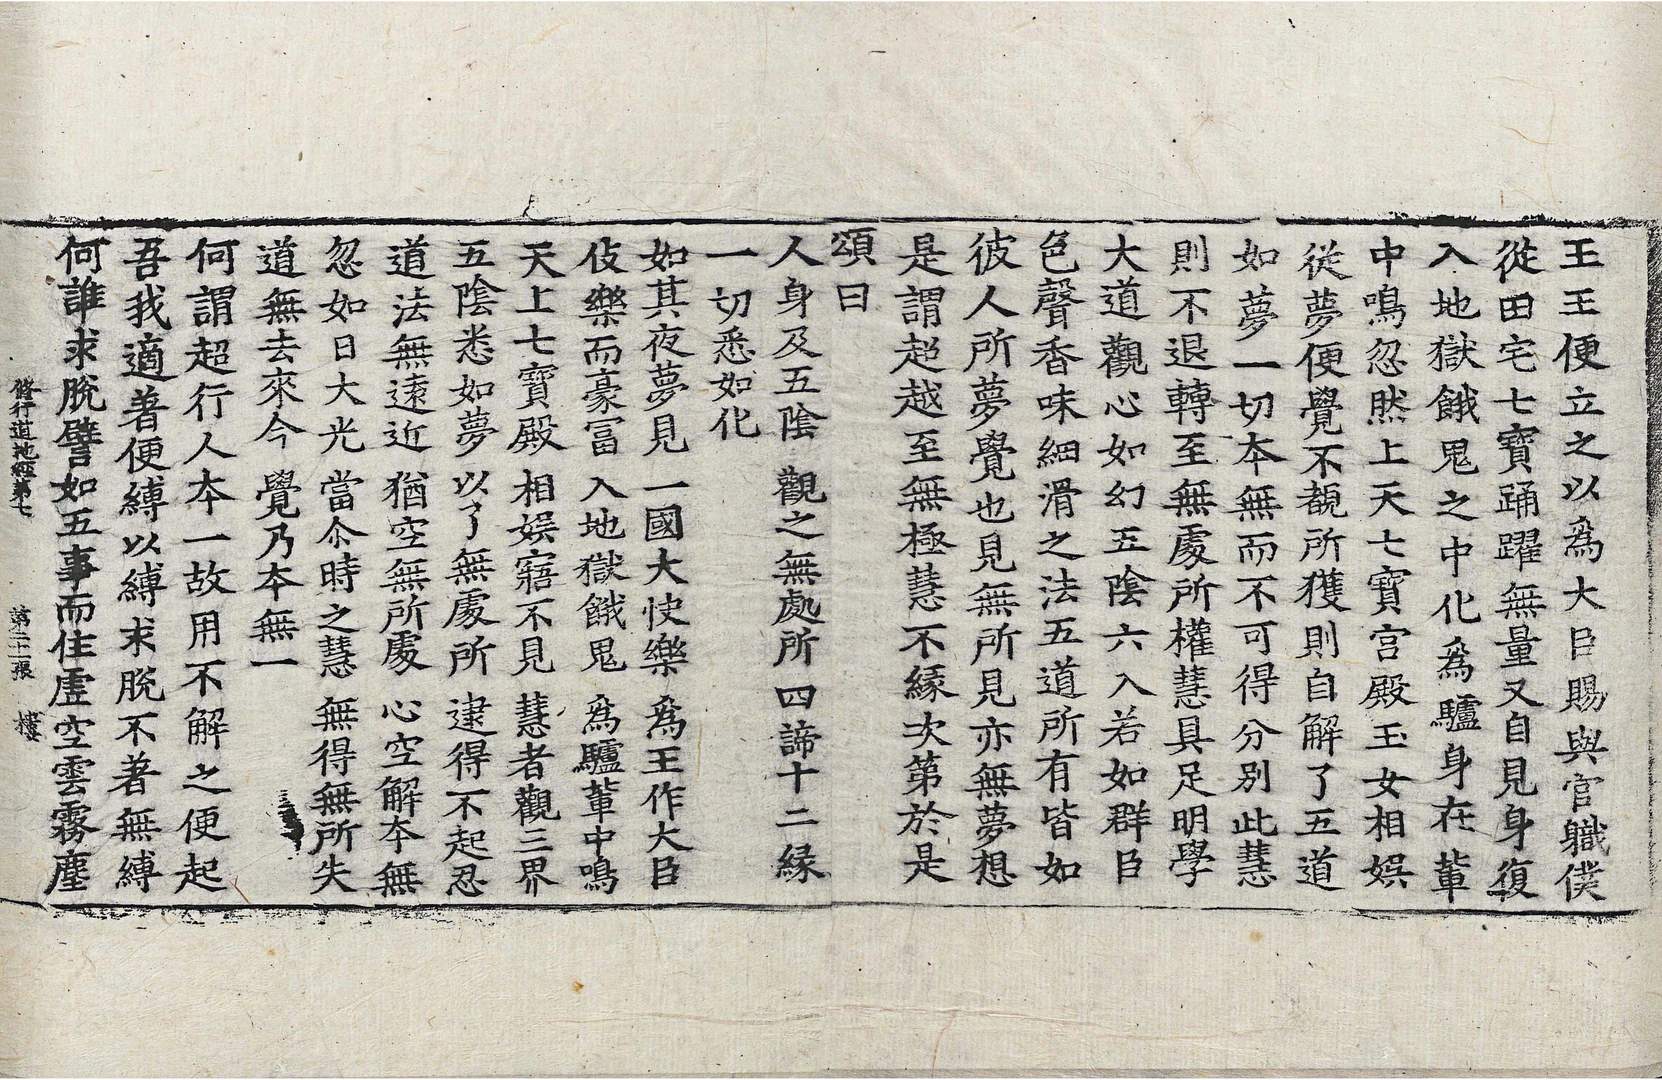 王王便立之以爲大臣賜與官軄僕
從田宅七寶踊躍無量又自見身復
入地獄餓鬼之中化爲驢身在輩
中鳴忽然上天七寶宮殿玉女相娛
從夢便覺不覩所獲則自解了五道
如夢一切本無而不可得分別此慧
則不退轉至無處所權慧具足明學
大道觀心如幻五陰六入若如群臣
色聲香味細滑之法五道所有皆如
彼人所夢覺也見無所見亦無夢想
是謂超越至無極慧不緣次第於是
頌曰
人身及五陰 觀之無處所 四諦十二緣
一切悉如化
如其夜夢見 一國大快樂 爲王作大臣
伎樂而豪冨 入地獄餓鬼 爲驢輩中鳴
天上七寶殿 相娛寤不見 慧者觀三界
五陰悉如夢 以了無處所 逮得不起忍
道法無遠近 猶空無所處 心空解本無
忽如日大光 當尒時之慧 無得無所失
道無去來今 覺乃本無一
何謂超行人本一故用不解之便起
吾我適著便縛以縛求脫不著無縛
何誰求脫譬如五事而住虛空雲霧塵
脩行道地經第七 第二十二張 樓